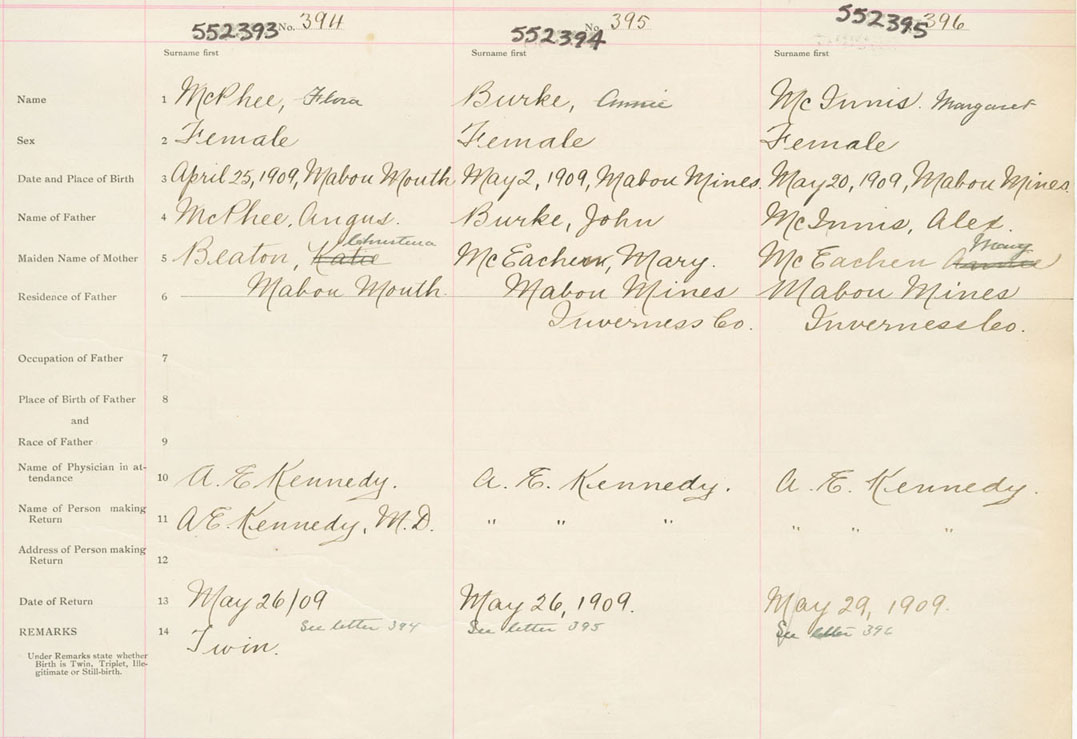 552393 No. 394 552394 No. 395 552395 396
Surname first Surname first Surname first
Name 1 McPhee, Flora Burke, Annie McInnis. Margaret
Sex 2 Female Female Female
Date and Place of Birth 3 April 25, 1909, Mabou Mouth May 2, 1909, Mabou Mines. May 20, 1909, Mabou Mines.
Name of Father 4 McPhee, Angus. Burke, John McInnis, Alex.
Christina Mary
Maiden Name of Mother 5 Beaton, Katie McEachern, Mary. McEachen
Residence of Father 6 Mabou Mouth. Mabou Mines Mabou Mines
Inverness Co. Inverness Co.
Occupation of Father 7
Place of Birth of Father 8
and
Race of Father 9
Name of Physician in at-
tendance 10 A. E. Kennedy. A. E. Kennedy. A. E. Kennedy.
Name of Person making
Return 11 A. E. Kennedy, M.D. " " " " " "
Address of Person making
Return 12
Date of Return 13 May 26/09 May 26, 1909. May 29, 1909.
See letter 394 See letter 395 See letter 396
REMARKS 14 Twin.
Under Remarks state whether
Birth is Twin, Triplet, Ille-
gitimate or Still-birth.